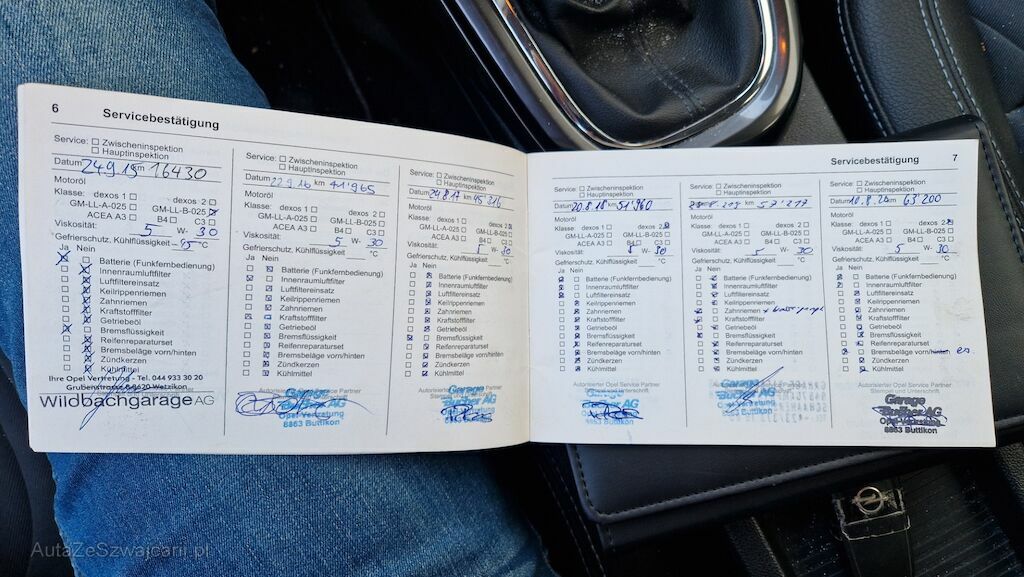 6 Servicebestätigung
Service: Zwischeninspektion
Hauptinspektion
Datum 24.9.15 km 16430
Motoröl
Klasse: dexos 1 dexos 2
GM-LL-A-025 GM-LL-B-025
ACEA A3 B4 C3
Viskosität: 5 W- 30
Gefrierschutz, Kühlflüssigkeit °C
Ja Nein
Batterie (Funkfernbedienung)
Innenraumluftfilter
Luftfiltereinsatz
Keilrippenriemen
Zahnriemen
Kraftstofffilter
Getriebeöl
Bremsflüssigkeit
Reifenreparaturset
Bremsbeläge vorn/hinten
Zündkerzen
Kühlmittel
Ihre Opel Vertretung - Tel. 044 933 30 20
Grubenstrasse 8620 Wetzikon
Wildbachgarage AG
Service: Zwischeninspektion
Hauptinspektion
Datum 22.9.16 km 41965
Motoröl
Klasse: dexos 1 dexos 2
GM-LL-A-025 GM-LL-B-025
ACEA A3 B4 C3
Viskosität: 5 W- 30
Gefrierschutz, Kühlflüssigkeit °C
Ja Nein
Batterie (Funkfernbedienung)
Innenraumluftfilter
Luftfiltereinsatz
Keilrippenriemen
Zahnriemen
Kraftstofffilter
Getriebeöl
Bremsflüssigkeit
Reifenreparaturset
Bremsbeläge vorn/hinten
Zündkerzen
Kühlmittel
Autorisierter Opel Service Partner
Opel Vertretung
8863 Buttikon
Service: Zwischeninspektion
Hauptinspektion
Datum 24.8.17 km 45216
Motoröl
Klasse: dexos 1 dexos 2
GM-LL-A-025 GM-LL-B-025
ACEA A3 B4 C3
Viskosität: 5 W- 30
Gefrierschutz, Kühlflüssigkeit °C
Ja Nein
Batterie (Funkfernbedienung)
Innenraumluftfilter
Luftfiltereinsatz
Keilrippenriemen
Zahnriemen
Kraftstofffilter
Getriebeöl
Bremsflüssigkeit
Reifenreparaturset
Bremsbeläge vorn/hinten
Zündkerzen
Kühlmittel
Autorisierter Opel Service Partner
Garage
Bucher AG
8863 Buttikon
Servicebestätigung 7
Service: Zwischeninspektion
Hauptinspektion
Datum 20.8.18 km 51960
Motoröl
Klasse: dexos 1 dexos 2
GM-LL-A-025 GM-LL-B-025
ACEA A3 B4 C3
Viskosität: 5 W- 30
Gefrierschutz, Kühlflüssigkeit °C
Ja Nein
Batterie (Funkfernbedienung)
Innenraumluftfilter
Luftfiltereinsatz
Keilrippenriemen
Zahnriemen
Kraftstofffilter
Getriebeöl
Bremsflüssigkeit
Reifenreparaturset
Bremsbeläge vorn/hinten
Zündkerzen
Kühlmittel
Autorisierter Opel Service Partner
Stempel und Unterschrift
Garage
Bucher AG
8863 Buttikon
Service: Zwischeninspektion
Hauptinspektion
Datum km 57217
Motoröl
Klasse: dexos 1 dexos 2
GM-LL-A-025 GM-LL-B-025
ACEA A3 B4 C3
Viskosität: 5 W- 30
Gefrierschutz, Kühlflüssigkeit °C
Ja Nein
Batterie (Funkfernbedienung)
Innenraumluftfilter
Luftfiltereinsatz
Keilrippenriemen
Zahnriemen
Kraftstofffilter
Getriebeöl
Bremsflüssigkeit
Reifenreparaturset
Bremsbeläge vorn/hinten
Zündkerzen
Kühlmittel
Garage
Bucher AG
Opel Vertretung
8863 Buttikon
Service: Zwischeninspektion
Hauptinspektion
Datum 10.8.20 km 63200
Motoröl
Klasse: dexos 1 dexos 2
GM-LL-A-025 GM-LL-B-025
ACEA A3 B4 C3
Viskosität: 5 W- 30
Gefrierschutz, Kühlflüssigkeit °C
Ja Nein
Batterie (Funkfernbedienung)
Innenraumluftfilter
Luftfiltereinsatz
Keilrippenriemen
Zahnriemen
Kraftstofffilter
Getriebeöl
Bremsflüssigkeit
Reifenreparaturset
Bremsbeläge vorn/hinten
Zündkerzen
Kühlmittel
Autorisierter Opel Service Partner
Stempel und Unterschrift
Garage
Bucher AG
Opel Vertretung
8863 Buttikon
AutaZeSzwajcarii.pl